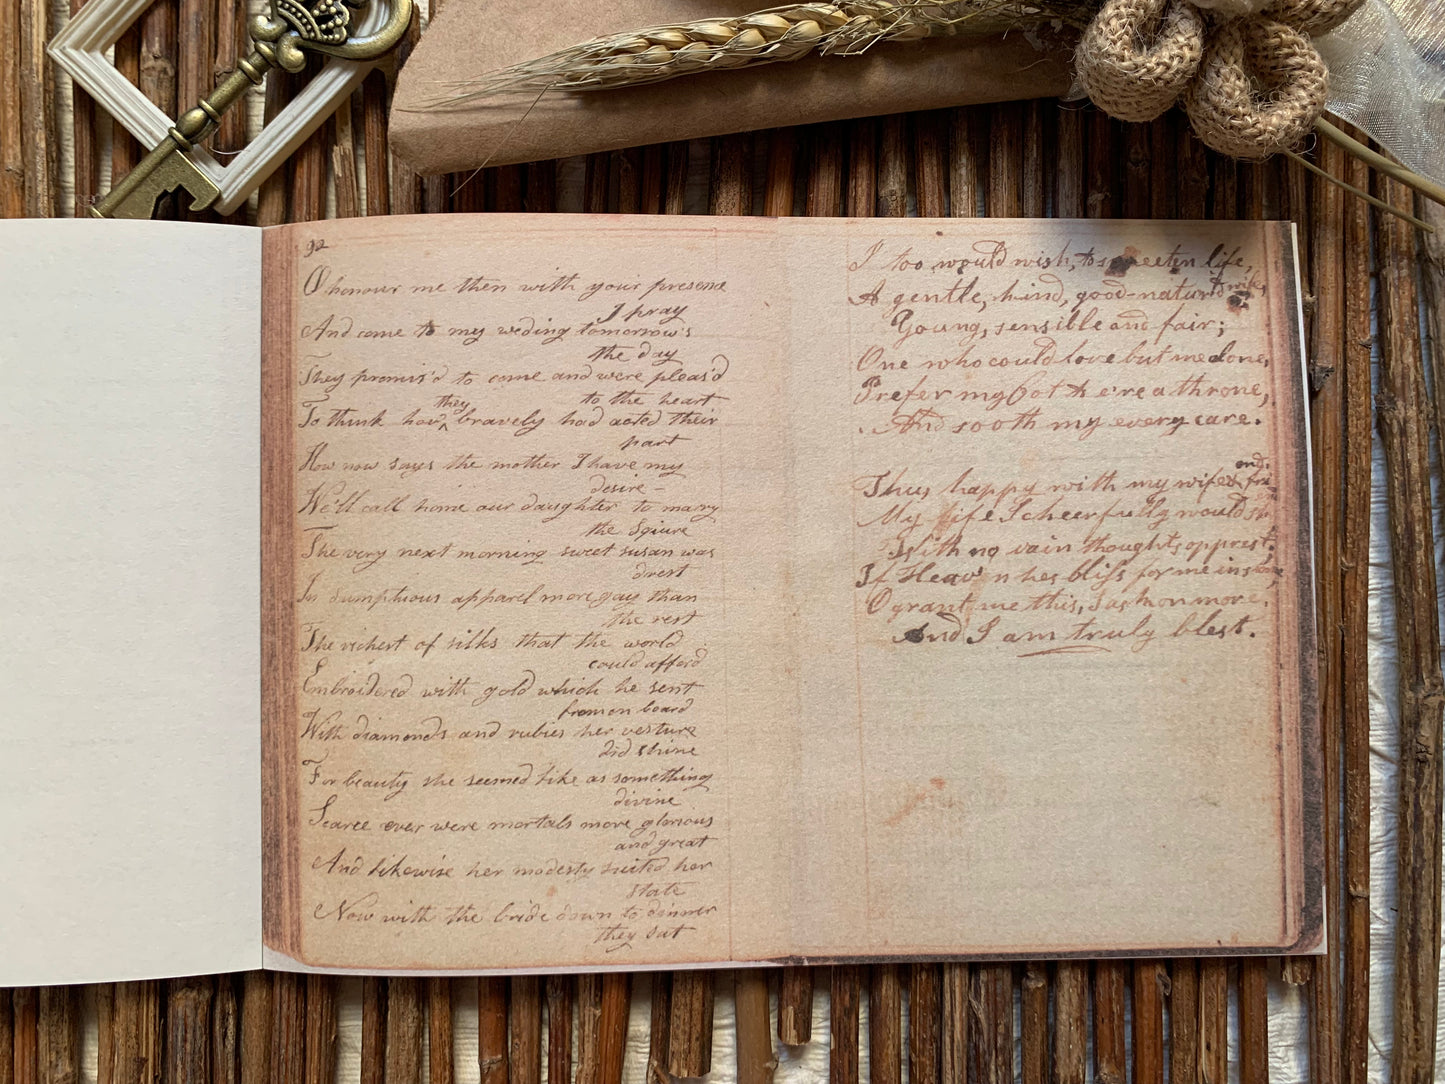 92
O honour me then with your presence
I pray
And come to my weding tomorrow's
the day
They promis'd to come and were pleas'd
to the heart
To think how they bravely had acted their
part
How now says the mother I have my
desire –
We'll call home our daughter to marry
the Squire
The very next morning sweet susan was
drest
In sumptuous apparel more gay than
the rest
The richest of silks that the world
could afford
Embroidered with gold which he sent
from on board
With diamonds and rubies her vesture
did shine
For beauty she seemed like as something
divine
Scarce ever were mortals more glorious
and great
And likewise her modesty suited her
state
Now with the bride down to dinner
they sat
I too would wish, to sweeten life,
A gentle, kind, good-natur'd wife,
Young, sensible and fair;
One who could love but me alone,
Prefer my Cot to e're a throne,
And sooth my every care.
Thus happy with my wife and
My life I cheerfully would
With no vain thoughts opprest;
If Heaven has bliss for me in
O grant me this, I ask no more,
And I am truly blest.